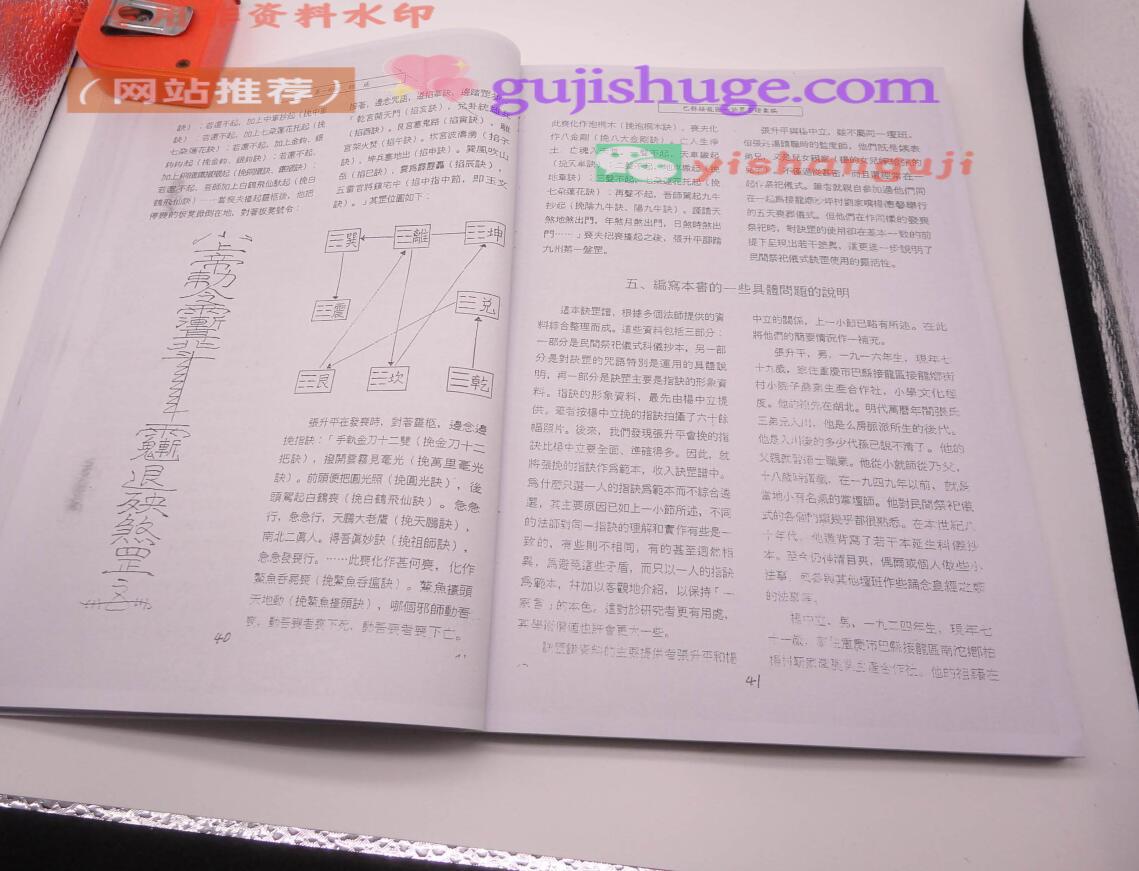 资料水印
（网站推荐）
gujishuge.com
yishanguji
訣）：若還不起，加上中軍抄起（挽中軍
訣）：若還不起，加上七朵蓮花托起（挽
七朵蓮花訣）：若還不起，加上金鈎、銀
鈎鈎起（挽金鈎、銀鈎訣）：若還不起，
若還不起，吾師加上白鶴飛仙馱起（挽白
鶴飛仙訣）……當喪夫擡起靈柩後，他把
停喪的板凳掀倒在地，對著板凳號令：
退
殃
煞
罡
按著，邊念咒語，邊掐掌訣，邊踏罡步
，乾宮開天門（掐亥訣），兌卦統雄兵
（掐酉訣）。艮宮塞鬼路（掐寅訣），離
宮架火焚（掐午訣）。坎宮波濤湧（掐子
訣），坤兵墓地出（掐申訣）。巽風吹山
岳（掐巳訣），震爲霹靂轟（掐辰訣），
五雷官將鎮宅中（掐中指中節，即玉文
訣）。」其罡位圖如下：
巽
離
坤
震
兌
艮
坎
乾
張升平在發喪時，對著靈柩，邊念邊
挽指訣：「手執金刀十二雙（挽金刀十二
把訣），撥開雲霧見毫光（挽萬里毫光
訣）。前頭便把圓光照（挽圓光訣），後
頭駕起白鶴喪（挽白鶴飛仙訣）。急急
行，急急行，天鵬大老鷹（挽天鵬訣），
南北二眞人。得吾眞妙訣（挽祖師訣），
急急發喪行。……此喪化作甚何喪，化作
鰲魚吞屍喪（挽鰲魚吞瘟訣）。鰲魚擡頭
天地動（挽鰲魚擡頭訣），哪個邪師動吾
喪，動吾喪者喪下死，動吾喪者喪下亡。
40
此喪化作抱桐木（挽抱桐木訣），喪夫化
作八金剛（挽八大金剛訣）。亡人生淨
地車訣）：三聲不起，七朵蓮花托起（挽
七朵蓮花訣）：再聲不起，吾師駕起九牛
抄起（挽陰九牛訣、陽九牛訣）。謹請天
煞地煞出門，年煞月煞出門，日煞時煞出
門……」喪夫把喪擡起之後，張升平腳踏
九州第一盤罡。
張升平與楊中立，雖不屬同一壇班。
起作祭祀儀式。筆者就親自參加過他們同
在一起爲接龍鄉沙坪村劉家嘴楊德馨舉行
的五天喪葬儀式。但他們在作同樣的發喪
祭祀時，對訣罡的使用卻在基本一致的前
提下呈現出若干差異，這更進一步說明了
民間祭祀儀式訣罡使用的靈活性。
五、編寫本書的一些具體問題的說明
這本訣罡譜，根據多個法師提供的資
料綜合整理而成。這些資料包括三部分：
一部分是民間祭祀儀式科儀抄本，另一部
分是對訣罡的咒語特別是運用的具體說
明，再一部分是訣罡主要是指訣的形象資
料。指訣的形象資料，最先由楊中立提
供。筆者按楊中立挽的指訣拍攝了六十餘
幅照片。後來，我們發現張升平會挽的指
訣比楊中立要全面、準確得多。因此，就
將張挽的指訣作爲範本，收入訣罡譜中。
爲什麼只選一人的指訣爲範本而不綜合遴
選，其主要原因已如上一小節所述，不同
的法師對同一指訣的理解和實作有些是一
致的，有些則不相同，有的甚至迥然相
異，爲避免這些矛盾，而只以一人的指訣
爲範本，并加以客觀地介紹，以保持「一
家言」的本色。這對於研究者更有用處，
其學術價值也許會更大一些。
訣罡譜資料的主要提供者張升平和楊
中立的關係，上一小節已略有所述。在此
將他們的簡要情況作一補充。
張升平，男，一九一六年生，現年七
十九歲，家住重慶市巴縣接龍區接龍鄉街
村小院子農業生產合作社，小學文化程
度。他的祖先在湖北。明代萬曆年間張氏
三弟兄入川，他是么房脈派所生的後代。
他是入川後的多少代孫已說不清了。他的
父親就習道士職業。他從小就師從乃父，
當地小有名氣的掌壇師。他對民間祭祀儀
式的各個門類幾乎都很熟悉。在本世紀八
十年代，他還背寫了若干本延生科儀抄
本。至今仍神清目爽，偶爾或個人做些小
法事，或參與其他壇班作些誦念皇經之類
的法事等。
楊中立，男，一九二四年生，現年七
十一歲，家住重慶市巴縣接龍區南沱鄉柏
41